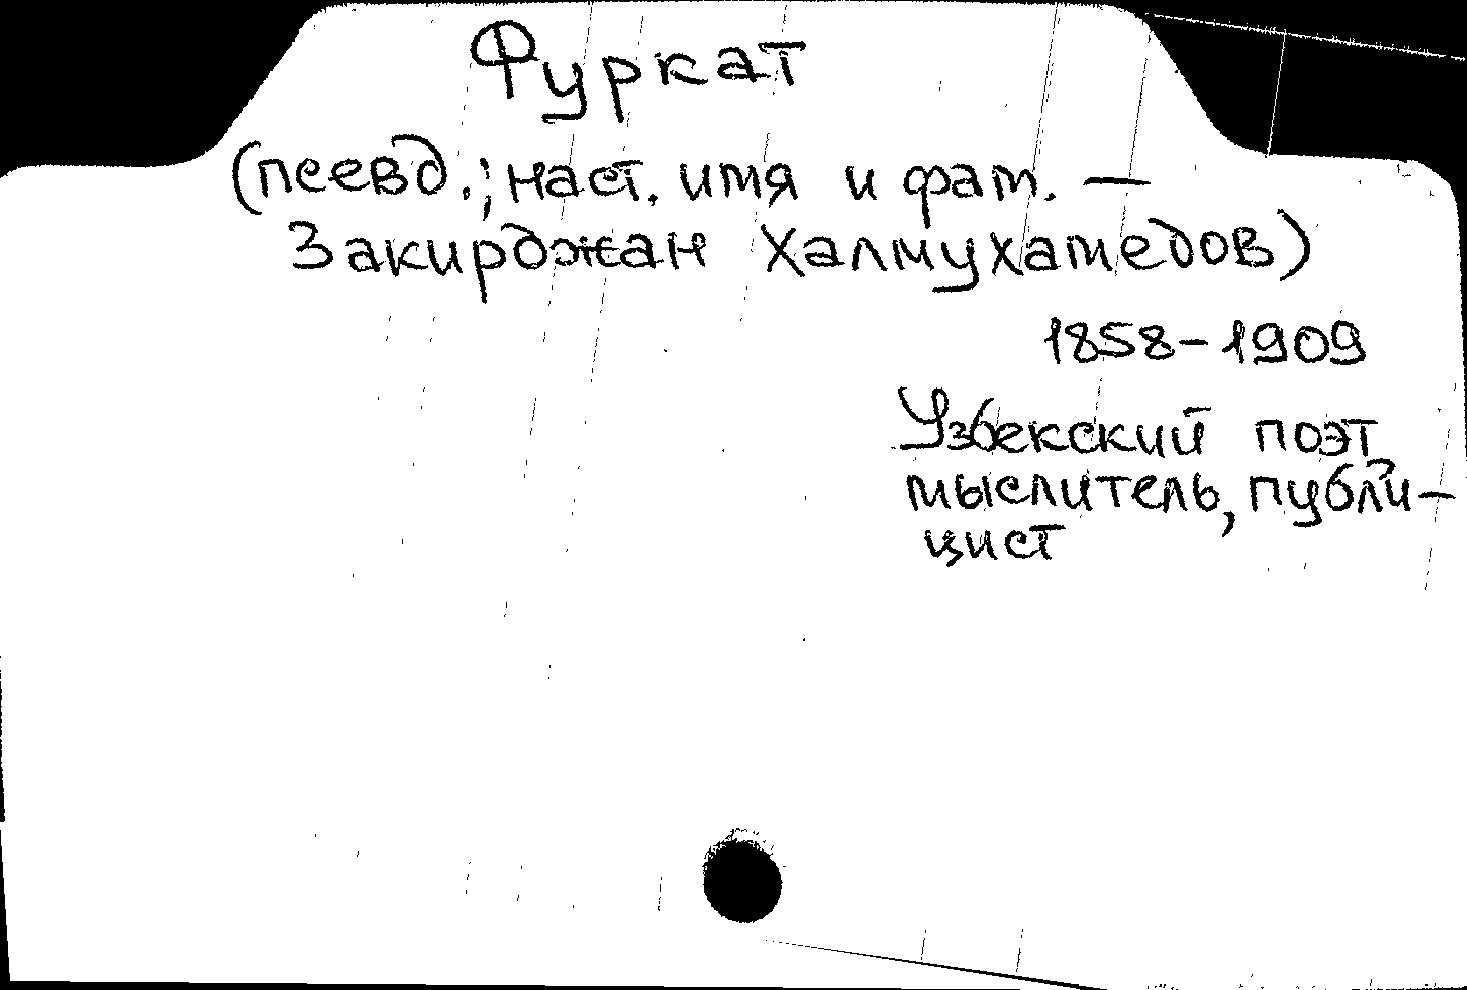 Фуркат
(псевд.; наст. имя и фам. —
Закирджан Халмухамедов)
1858-1909
Узбекский поэт
мыслитель, публи-
цист